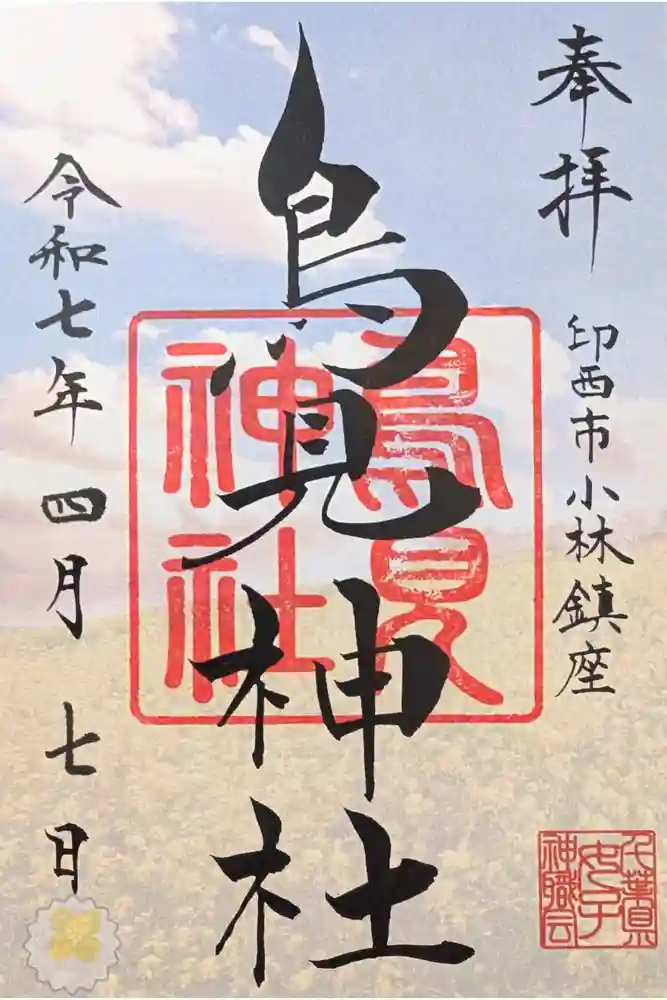 奉拝
印西市小林鎮座
鳥見神社
鳥見
神社
令和七年四月七日
千葉県
女子
神職会